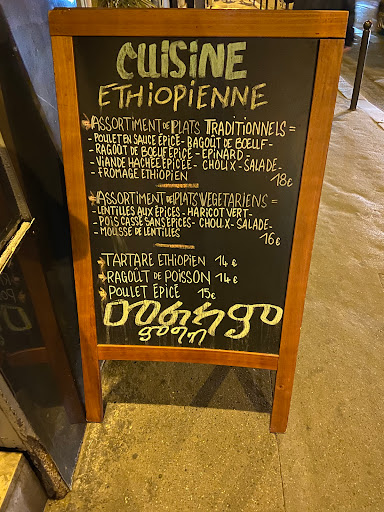 CUISINE
ETHIOPIENNE
ASSORTIMENT DE PLATS TRADITIONNELS =
- POULET EN SAUCE ÉPICÉ - BAGOÛT DE BOEUF -
- RAGOÛT DE BOEUF ÉPICE - EPINARD -
- VIANDE HACHÉE EPICÉE - CHOUX - SALADE -
- FROMAGE ETHIOPIEN 18€
ASSORTIMENT DE PLATS VEGETARIENS =
- LENTILLES AUX ÉPICES - HARICOT VERT -
- POIS CASSÉ SANS ÉPICES - CHOUX - SALADE -
- MOUSSE DE LENTILLES 16€
TARTARE ETHIOPIEN 14€
RAGOÛT DE POISSON 14€
POULET ÉPICÉ 15€